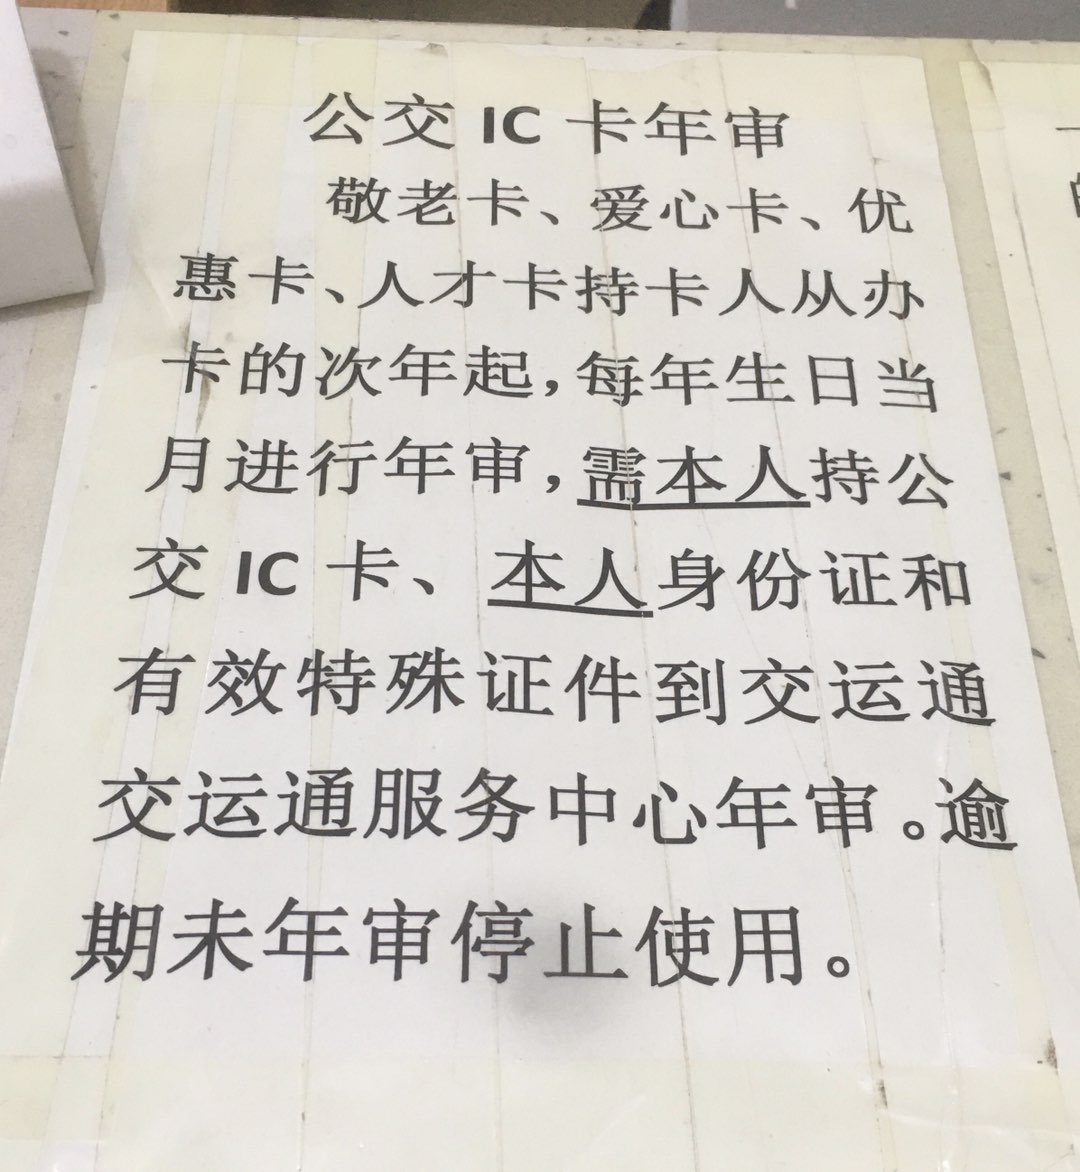 公交 IC 卡年审
敬老卡、爱心卡、优
惠卡、人才卡持卡人从办
卡的次年起，每年生日当
月进行年审，需本人持公
交 IC 卡、本人身份证和
有效特殊证件到交运通
交运通服务中心年审。逾
期未年审停止使用。